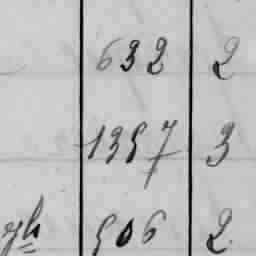 632 2
1357 3
506 2